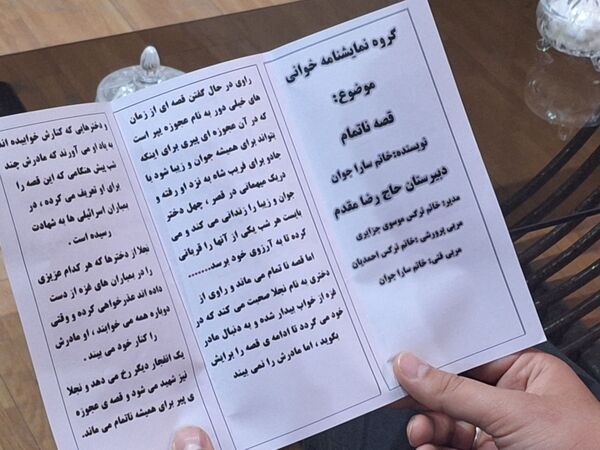 گروه نمایشنامه خوانی
موضوع:
قصه ناتمام
نویسنده:خانم سارا جوان
دبیرستان حاج رضا مقدم
مدیر: خانم نرگس موسوی جزایری
مربی پرورشی: خانم نرگس احمدیان
مربی فنی: خانم سارا جوان
راوی در حال گفتن قصه ای از زمان
های خیلی دور به نام عجوزه پیر است
که در آن عجوزه ای پیری برای اینکه
بتواند برای همیشه جوان و زیبا شود با
جادو برای فریب شاه به نزد او رفته و
دریک میهمانی در قصر، چهل دختر
جوان و زیبا را زندانی می کند و می
بایست هر شب یکی از آنها را قربانی
کرده تا به آرزوی خود برسد........
اما قصه نا تمام می ماند و راوی از
دختری به نام نجلا صحبت می کند که در
غزه از خواب بیدار شده و به دنبال مادر
خود می گردد تا ادامه ی قصه را برایش
بگوید ، اما مادرش را نمی بیند
و دخترهایی که کنارش خوابیده اند
به یاد او می آورند که مادرش چند
شب پیش هنگامی که این قصه را
برای او تعریف می کرده ، در
بمباران اسرائیلی ها به شهادت
رسیده است .
نجلا از دخترها که هر کدام عزیزی
را در بمباران های غزه از دست
داده اند عذرخواهی کرده و وقتی
دوباره همه می خوابند ، او مادرش
را کنار خود می بیند .
یک انفجار دیگر رخ می دهد و نجلا
نیز شهید می شود و قصه ی عجوزه
ی پیر برای همیشه ناتمام می ماند.